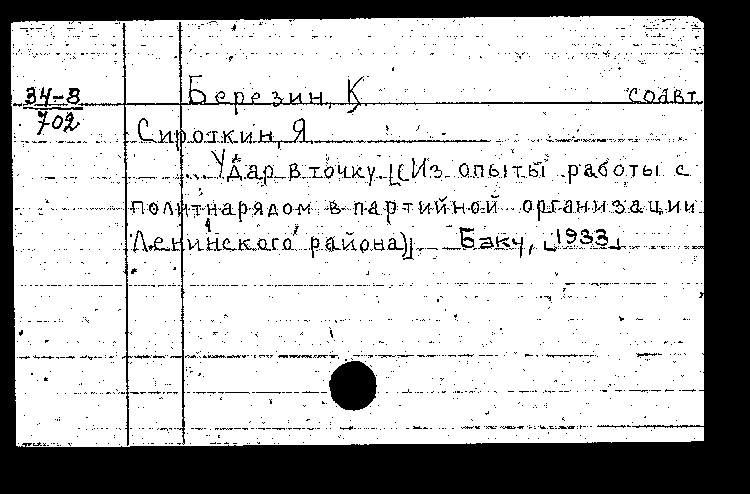 34-8
702
Березин, К. соавт.
Сироткин, Я
... Удар в точку. [(Из опыты работы с
политнарядом в партийной организации
Ленинского района)]. Баку, [1933]